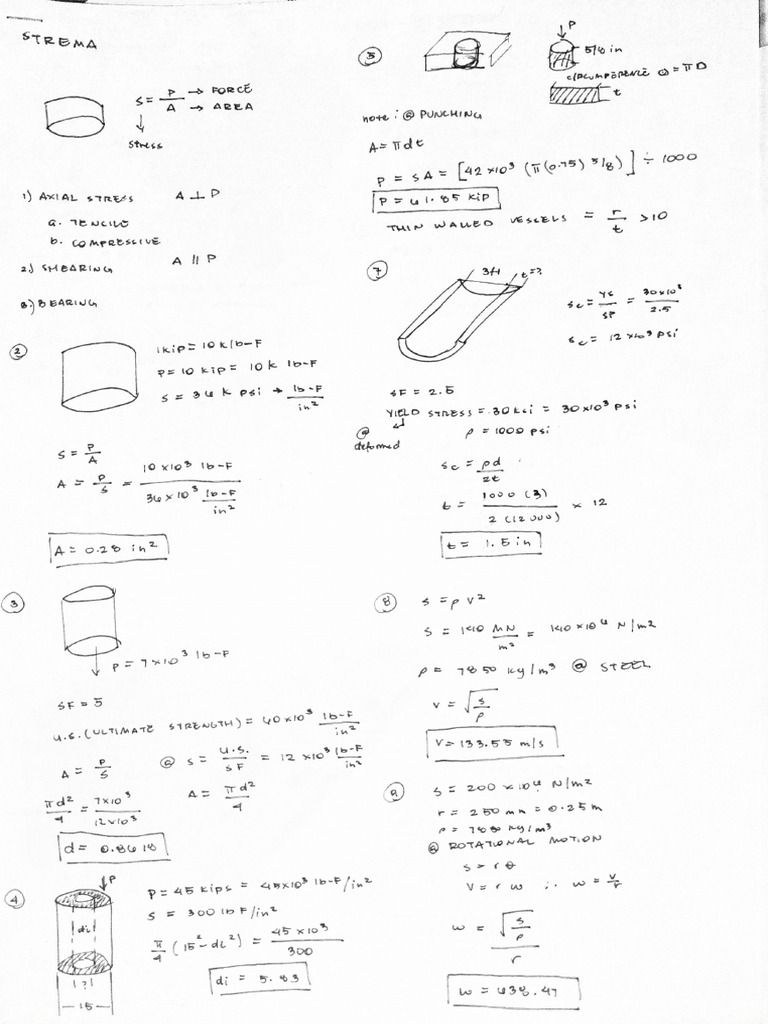 STREMA
S = P/A → FORCE
→ AREA
↓
Stress
1) AXIAL STRESS A ⊥ P
a. TENCILE
b. COMPRESSIVE
2) SHEARING A // P
3) BEARING
②
1 kip = 10 k lb-F
P = 10 kip = 10 k lb-F
S = 36 k psi → lb-F/in²
S = P/A
A = P/S = 10 x 10³ lb-F / 36 x 10³ lb-F/in²
A = 0.28 in²
③
P = 7 x 10³ lb-F
SF = 5
U.S. (ULTIMATE STRENGTH) = 60 x 10³ lb-F/in²
A = P/S @ S = U.S./SF = 12 x 10³ lb-F/in²
πd²/4 = 7x10³/12x10³ A = πd²/4
d = 0.8618
④
P
di
|?|
15
P = 45 kips = 45x10³ lb-F/in²
S = 300 lb F/in²
π/4 (15² - di²) = 45 x 10³/300
di = 5.83
⑤
P
5/8 in
CIRCUMFERENCE = πD
t
note: @ PUNCHING
A = πdt
P = SA = [42x10³ (π(0.75) 5/8)] ÷ 1000
P = 61.85 kip
THIN WALLED VESSELS = r/t > 10
⑦
3ft t=?
Sc = YS/SF = 30x10³/2.5
Sc = 12x10³ psi
SF = 2.5
YIELD STRESS = 30 ksi = 30x10³ psi
@ deformed
ρ = 1000 psi
Sc = ρd/2t
t = 1000 (3) / 2 (12000) x 12
t = 1.5 in
⑧
S = ρ v²
S = 140 MN/m² = 140x10⁶ N/m²
ρ = 7850 kg/m³ @ STEEL
V = √(S/ρ)
V = 133.55 m/s
S = 200 x 10⁶ N/m²
r = 250 mm = 0.25 m
@ ROTATIONAL MOTION
S = r θ
V = r ω ∴ ω = V/r
ω = √(S/ρ) / r
ω = 638.47